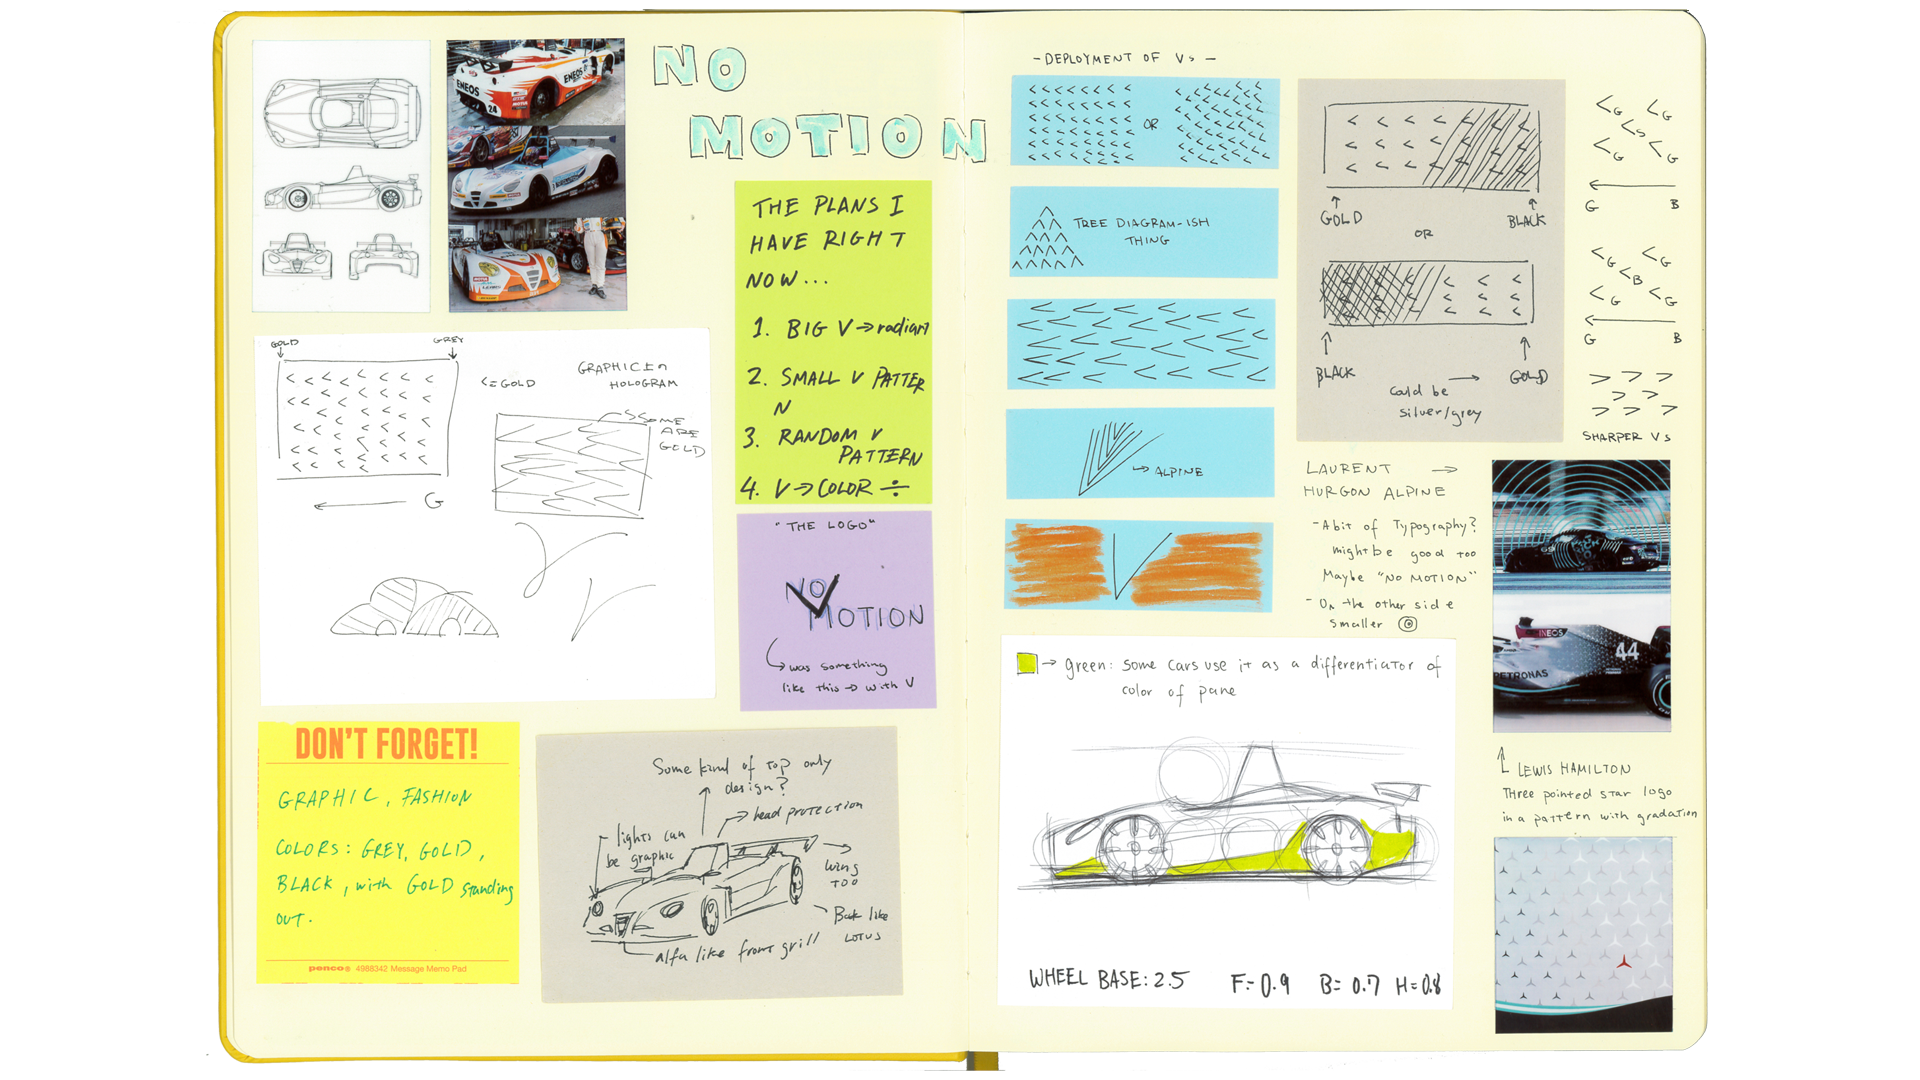 NO
MOTION
ENEOS
ENEOS
24
THE PLANS I
HAVE RIGHT
NOW...
1. BIG V → radiant
2. SMALL V PATTER
N
3. RANDOM V
PATTERN
4. V → COLOR ÷
GOLD
GREY
<= GOLD
GRAPHIC In
HOLOGRAM
SOME
ARE
GOLD
G
"THE LOGO"
NO
MOTION
was something
like this → with V
DON'T FORGET!
GRAPHIC, FASHION
COLORS: GREY, GOLD,
BLACK, with GOLD standing
OUT.
penco® 4988342 Message Memo Pad
Some kind of top only
design?
head protection
lights can
be graphic
wing
TOO
Back like
LOTUS
alfa like front grill
- DEPLOYMENT OF Vs -
OR
TREE DIAGRAM-ISH
THING
→ ALPINE
GOLD
BLACK
OR
BLACK
GOLD
Could be
silver/grey
G
G
S
G
G
G
B
G
G
B
G
G
G
B
SHARPER Vs
LAURENT →
HURGON ALPINE
- A bit of Typography?
might be good too
Maybe "NO MOTION"
- On the other side
smaller
INEOS
44
PETRONAS
LEWIS HAMILTON
Three pointed star logo
in a pattern with gradation
→ green: some cars use it as a differentiator of
color of pane
WHEEL BASE: 2.5 F= 0.9 B= 0.7 H= 0.8